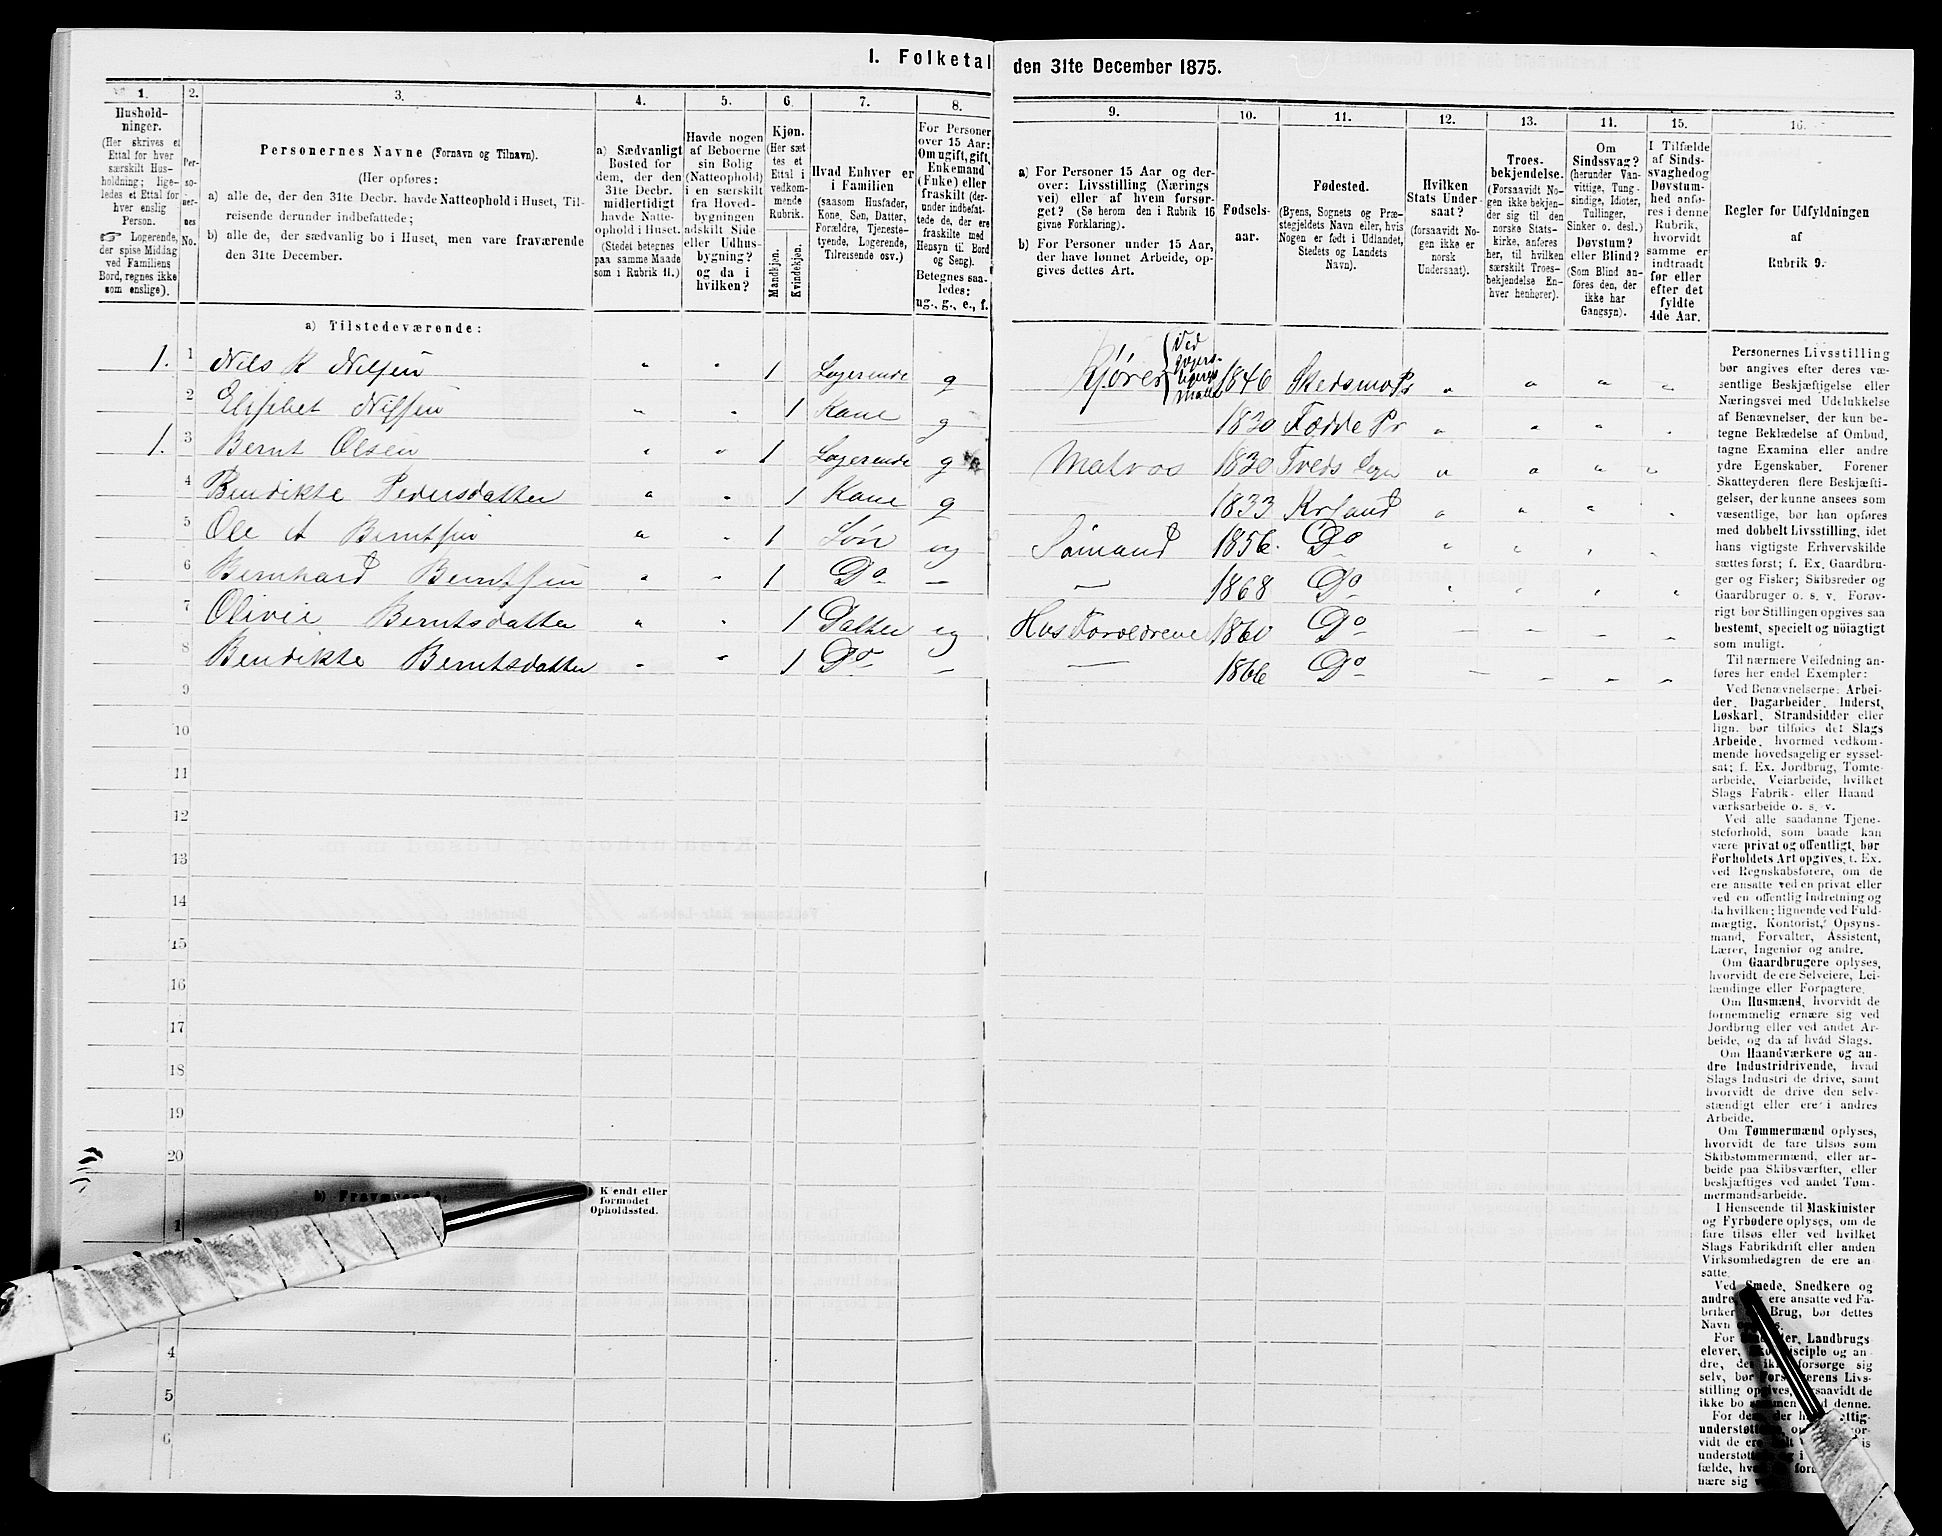 I. Folketal den 31te December 1875.
1.
Hushold-
ninger.
(Her skrives et
Ettal for hver
særskilt Hus-
holdning; lige-
ledes et Ettal for
hver enslig
Person.
Logerende,
der spise Middag
ved Familiens
Bord, regnes ikke
som enslige).
2.
Per-
so-
ner-
nes
No.
3.
Personernes Navne (Fornavn og Tilnavn).
(Her opføres:
a) alle de, der den 31te Decbr. havde Natteophold i Huset, Til-
reisende derunder indbefattede;
b) alle de, der sædvanlig bo i Huset, men vare fraværende
den 31te December.
4.
a) Sædvanligt
Bosted for
dem, der den
31te Decbr.
midlertidigt
havde Natte-
ophold i Huset.
(Stedet betegnes
paa samme Maade
som i Rubrik 11.)
5.
Havde nogen
af Beboerne
sin Bolig
(Natteophold)
i en særskilt
fra Hoved-
bygningen
adskilt Side
eller Udhus-
bygning?
og da i
hvilken?
6.
Kjøn.
(Her sæt-
tes et
Ettal i
vedkom-
mende
Rubrik.
Mandkjøn.
Kvindekjøn.
7.
Hvad Enhver er
i Familien
(saasom Husfader,
Kone, Søn, Datter,
Forældre, Tjeneste-
tyende, Logerende,
Tilreisende osv.)
8.
For Personer
over 15 Aar:
Om ugift, gift,
Enkemand
(Enke) eller
fraskilt (der-
under indbefat-
tede de, der ere
fraskilte med
Hensyn til Bord
og Seng).
Betegnes saa-
ledes:
ug., g., e., f.
9.
a) For Personer 15 Aar og der-
over: Livsstilling (Nærings
vei) eller af hvem forsør-
get? (Se herom den i Rubrik 16
givne Forklaring).
b) For Personer under 15 Aar,
der have lønnet Arbeide, op-
gives dettes Art.
10.
Fødsels-
aar.
11.
Fødested.
(Byens, Sognets og Præ-
stegjeldets Navn eller, hvis
Nogen er født i Udlandet,
Stedets og Landets
Navn).
12.
Hvilken
Stats Under-
saat?
(forsaavidt No-
gen ikke er
norsk
Undersaat).
13.
Troes-
bekjendelse.
(Forsaavidt No-
gen ikke bekjen-
der sig til den
norske Stats-
kirke, anføres
her, til hvilken
særskilt Troes-
bekjendelse En-
hver henhører).
14.
Om
Sindssvag?
(herunder Van-
vittige, Tung-
sindige, Idioter,
Tullinger,
Sinker o. desl.)
Døvstum?
eller Blind?
(Som Blind an-
føres den, der
ikke har
Gangsyn).
15.
I Tilfælde
af Sinds-
svaghed og
Døvstum-
hed anfø-
res i denne
Rubrik,
hvorvidt
samme er
indtraadt
før eller
efter det
fyldte
4de Aar.
16.
Regler for Udfyldningen
af
Rubrik 9.
a) Tilstedeværende:
1. 1 Nils K Nilsen " " 1 Logerende g Kjører 1846 Skedsmo Pr " " " "
2 Elisebet Nilsen " " 1 Kone g — 1830 Fædde Pr " " " "
1. 3 Bernt Olsen " " 1 Logerende g Matros 1830 Tveds Sogn " " " "
4 Bendikte Pedersdatter " " 1 Kone g 1833 Krsand " " " "
5 Ole A Berntsen " " 1 Søn ug Sømand 1856. Do " " " "
6 Bernhard Berntsen " " 1 Do — — 1868 Do " " " "
7 Olivie Berntsdatter " " 1 Datter ug Hos Forældrene 1860 Do — — — —
8 Bendikte Berntsdatter " " 1 Do — — 1866 Do — — — —
9
10
11
12
13
14
15
16
17
18
19
20
Kjendt eller
formodet
Opholdssted.
1
4
5
6
Personernes Livsstilling
bør angives efter deres væ-
sentlige Beskjæftigelse eller
Næringsvei med Udelukkelse
af Benævnelser, der kun be-
tegne Beklædelse af Ombud,
tagne Examina eller andre
ydre Egenskaber. Forener
Skatteyderen flere Beskjæfti-
gelser, der kunne ansees som
væsentlige, bør han opføres
med dobbelt Livsstilling, idet
hans vigtigste Erhvervskilde
sættes først; f. Ex. Gaardbru-
ger og Fisker; Skibsreder og
Gaardbruger o. s. v. Forøv-
rigt bør Stillingen opgives saa
bestemt, specielt og nøiagtigt
som muligt.
Til nærmere Veiledning an-
føres her endel Exempler:
Ved Benævnelserne: Arbei-
der, Dagarbeider, Inderst,
Løskarl, Strandsidder eller
lign. bør tilføies det Slags
Arbeide, hvormed vedkom-
mende hovedsagelig er syssel-
sat; f. Ex. Jordbrug, Tomte-
arbeide, Veiarbeide, hvilket
Slags Fabrik- eller Haand
værksarbeide o. s. v.
Ved alle saadanne Tjene-
steforhold, som baade kan
være privat og offentligt, bør
Forholdets Art opgives, t. Ex.
ved Regnskabsførere, om de
ere ansatte ved en privat eller
ved en offentlig Indretning og
da hvilken; lignende ved Fuld-
mægtig, Kontorist, Opsyns-
mand, Forvalter, Assistent,
Lærer, Ingeniør og andre.
Om Gaardbrugere oplyses,
hvorvidt de ere Selveiere, Lei-
lændinge eller Forpagtere.
Om Husmænd, hvorvidt de
fornemmelig ernære sig ved
Jordbrug eller ved andet Ar-
beide, og da af hvad Slags.
Om Haandværkere og an-
dre Industridrivende, hvad
Slags Industri de drive, samt
hvorvidt de drive den selv-
stændigt eller ere i andres
Arbeide.
Om Tømmermænd oplyses,
hvorvidt de fare tilsøs som
Skibstømmermænd, eller ar-
beide paa Skibsværfter, eller
beskjæftiges ved andet Tøm-
mermandsarbeide.
I Henseende til Maskinister
og Fyrbødere oplyses, om de
fare tilsøs eller ved hvilket
Slags Fabrikdrift eller anden
Virksomhedsgren de ere an-
satte.
Ved Smede, Snedkere og
andre, ere ansatte ved Fa-
briker Brug, bør dettes
Navn
For Landbrugs
elever, og an-
dre, forsørge sig
selv, bør Livs-
stilling opgives,
ikke bo denne.